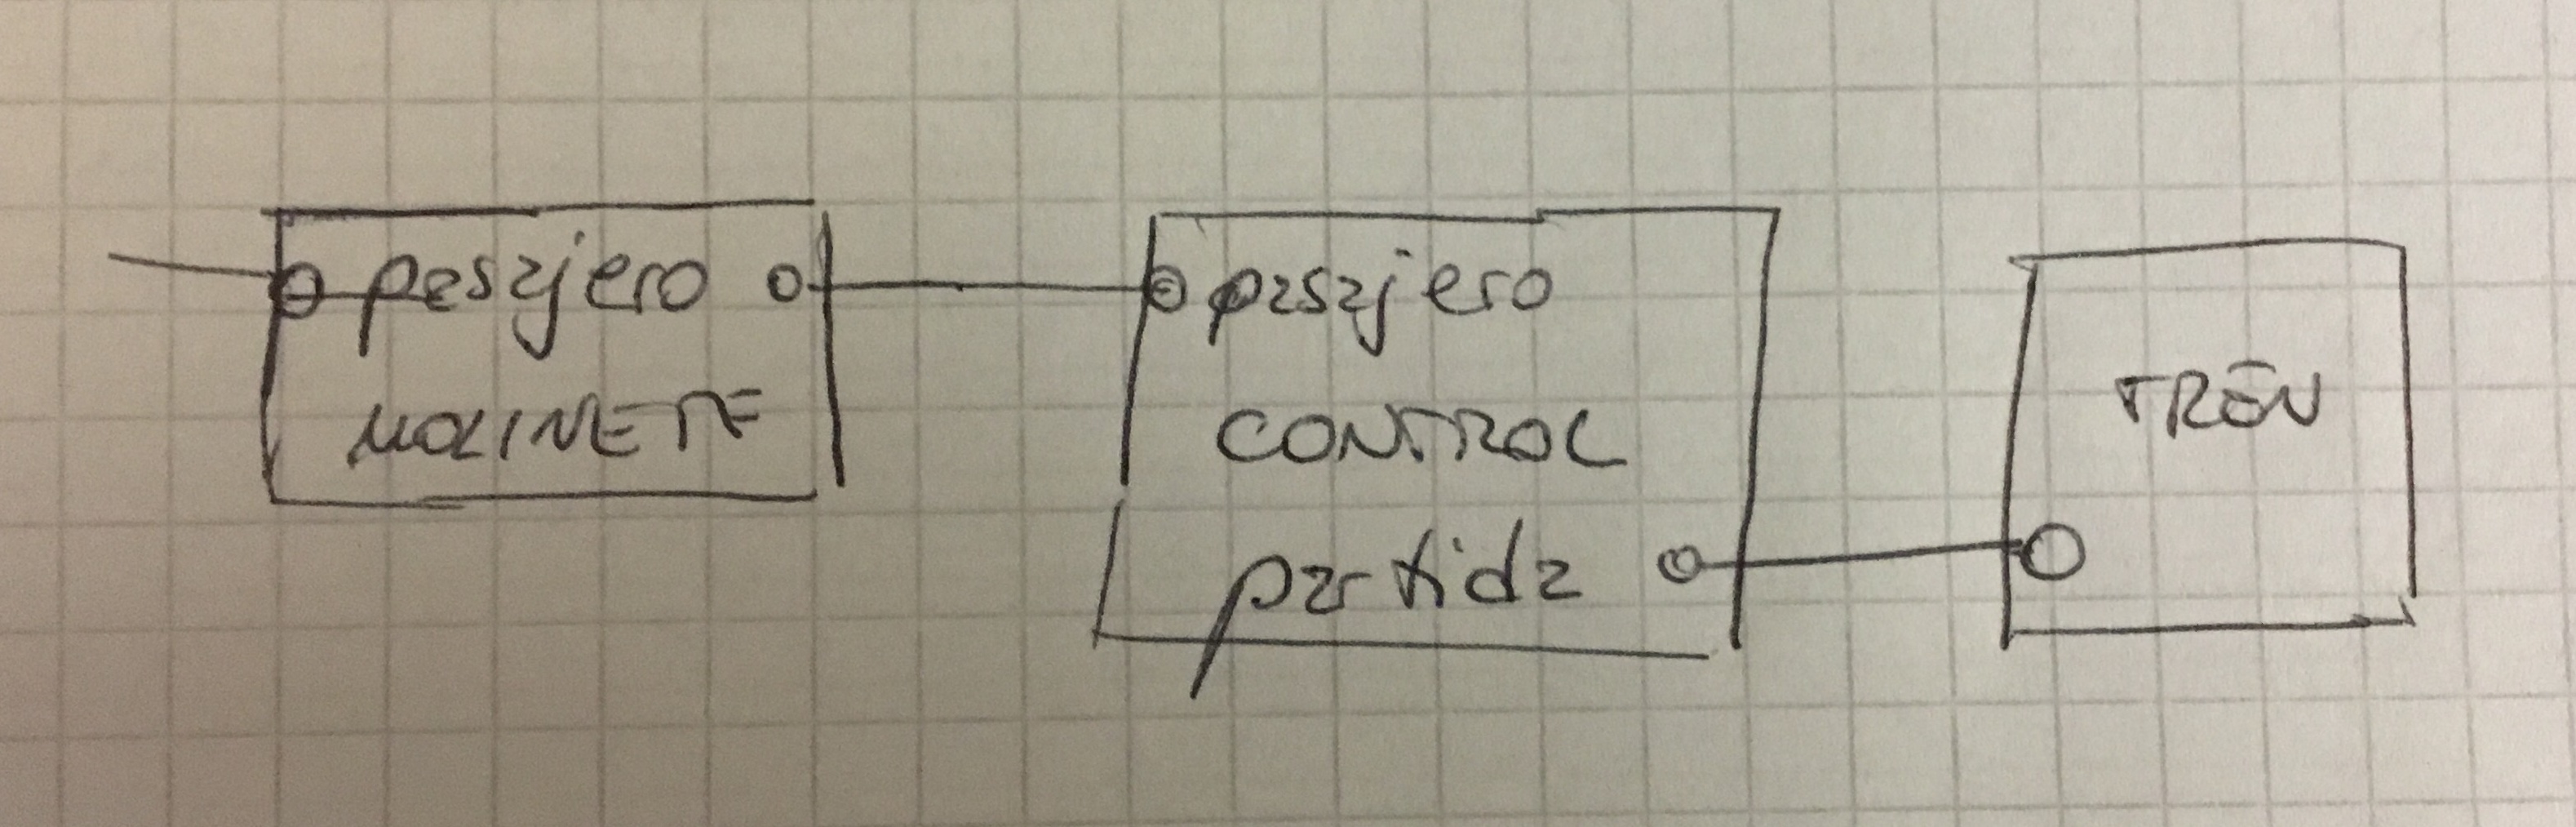 pasajero
MOLINETE
pasajero
CONTROL
partida
TREN